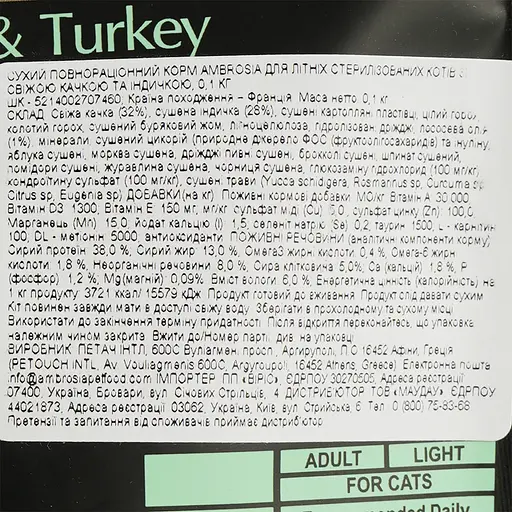 & Turkey
СУХИЙ ПОВНОРАЦІОННИЙ КОРМ AMBROSIA ДЛЯ ЛІТНІХ СТЕРИЛІЗОВАНИХ КОТІВ З
СВІЖОЮ КАЧКОЮ ТА ІНДИЧКОЮ, 0,1 КГ
ШК - 5214002707460; Країна походження – Франція. Маса нетто: 0,1 кг
СКЛАД: Свіжа качка (32%), сушена індичка (28%), сушені картопляні пластівці, цілий горох,
колотий горох, сушений буряковий жом, лігноцелюлоза, гідролізовані дріжджі, лососева олія
(1%), мінерали, сушений цикорій (природне джерело ФОС (фруктоолігосахаридів) та інуліну),
яблука сушені, морква сушена, дріжджі пивні сушені, броколі сушені, шпинат сушений,
помідори сушені, журавлина сушена, чорниця сушена, глюкозаміну гідрохлорид (100 мг/кг),
хондроїтину сульфат (100 мг/кг), сушені трави (Yucca schidigera, Rosmarinus sp, Curcuma sp,
Citrus sp, Eugenia sp) ДОБАВКИ (на кг): Поживні кормові добавки: МО/кг: Вітамін А 30 000,
Вітамін D3: 1300, Вітамін Е: 150 мг, мг/кг: сульфат міді (Cu): 5,0, сульфат цинку (Zn): 100,0,
Марганець (Mn): 15,0, йодат кальцію (I): 1,5, селеніт натрію (Se): 0,2, таурин: 1500, L - карнітин:
100, DL - метіонін: 5000, антиоксиданти. ПОЖИВНІ РЕЧОВИНИ (аналітичні компоненти корму):
Сирий протеїн: 38,0 %, Сирий жир: 13,0 %, Омега3 жирні кислоти: 0,4 %, Омега-6 жирні
кислоти: 1,8 %, Неорганічні речовини: 8,0 %, Сира клітковина: 5,0%, Ca (кальцій): 1,8 %, P
(фосфор): 1,2 %, Mg(магній): 0,09%. Вміст вологи: 6,0 %, Енергетична цінність (калорійність) на
1 кг продукту: 3721 ккал/ 15579 кДж. Продукт готовий до вживання. Продукт слід давати сухим.
Кіт повинен завжди мати в доступі свіжу воду. Зберігати в прохолодному та сухому місці.
Використати до закінчення терміну придатності. Після відкриття переконайтесь, що упаковка
належним чином закрита. Вжити до/Номер партії: див. на упаковці
ВИРОБНИК: ПЕТАЧ ІНТЛ, 600С Вуліагмен. просп., Аргируполі, П.С 16452 Афіни, Греція
(PETOUCH INTL, Av. Vouliagmenis 600C, Argyroupoli, 16452 Athens, Greece). Електронна пошта:
info@ambrosiapetfood.com ІМПОРТЕР: ПП «ВІРІС», ЄДРПОУ 30270505, Адреса реєстрації:
07400, Україна, Бровари, вул. Січових Стрільців, 4. ДИСТРИБ'ЮТОР: ТОВ «МАУДАУ» ЄДРПОУ
44021873, Адреса реєстрації: 03062, Україна, Київ, вул. Стрийська, 6. Тел.: 0 (800) 75-83-68
Претензії та запитання від споживачів приймає дистриб'ютор.
ADULT LIGHT
FOR CATS
Daily